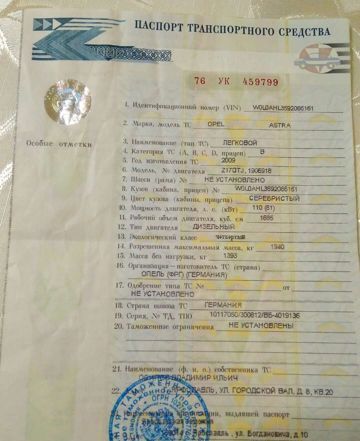 ПАСПОРТ ТРАНСПОРТНОГО СРЕДСТВА
76 УК 459799
1. Идентификационный номер (VIN) W0L0AHL3592086161
2. Марка, модель ТС OPEL ASTRA
Особые отметки
3. Наименование (тип ТС) ЛЕГКОВОЙ
4. Категория ТС (A, B, C, D, прицеп) B
5. Год изготовления ТС 2009
6. Модель, № двигателя Z17DTJ, 1906918
7. Шасси (рама) № НЕ УСТАНОВЛЕНО
8. Кузов (кабина, прицеп) № W0L0AHL3592086161
9. Цвет кузова (кабины, прицепа) СЕРЕБРИСТЫЙ
10. Мощность двигателя, л. с. (кВт) 110 (81)
11. Рабочий объем двигателя, куб. см 1686
12. Тип двигателя ДИЗЕЛЬНЫЙ
13. Экологический класс ЧЕТВЕРТЫЙ
14. Разрешенная максимальная масса, кг 1940
15. Масса без нагрузки, кг 1393
16. Организация-изготовитель ТС (страна)
ОПЕЛЬ (ФРГ) (ГЕРМАНИЯ)
17. Одобрение типа ТС № от
НЕ УСТАНОВЛЕНО
18. Страна вывоза ТС ГЕРМАНИЯ
19. Серия, № ТД, ТПО 10117050/300812/ВБ-4019136
20. Таможенные ограничения НЕ УСТАНОВЛЕНЫ
21. Наименование (ф. и. о.) собственника ТС
ВЛАДИМИР ИЛЬИЧ
22. ЯРОСЛАВЛЬ, УЛ. ГОРОДСКОЙ ВАЛ, Д. 8, КВ.20
организации, выдавшей паспорт
ул. Богдановича, д. 10